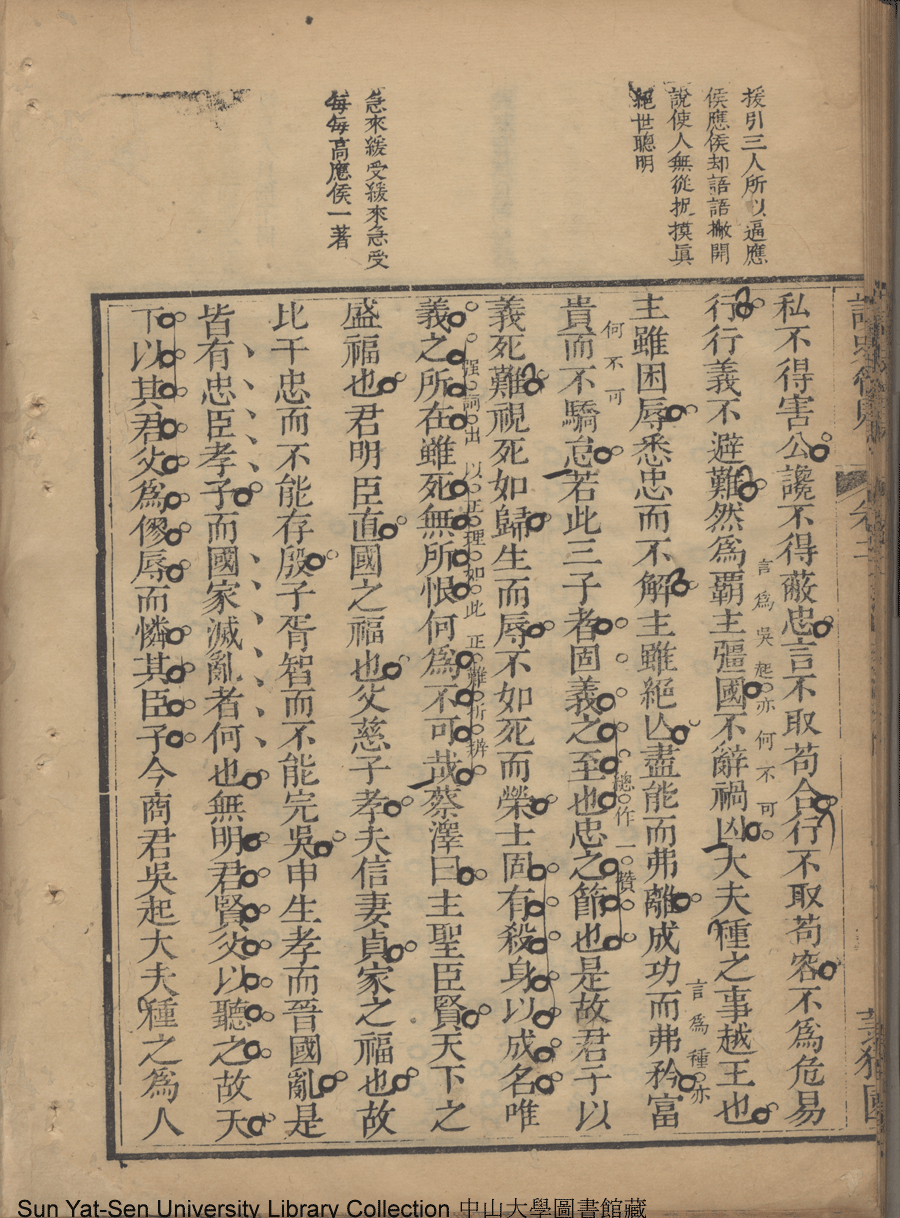 援引三人所以逼應
侯應侯却語語撇開
說使人無從捉摸眞
絕世聰明
急來緩受緩來急受
每每高應侯一著
私不得害公讒不得蔽忠言不取苟合行不取苟容不為危易
行行義不避難然為覇主彊國不辭禍凶大夫種之事越王也
言為吳起亦何不可
主雖困辱悉忠而不解主雖絕亾盡能而弗離成功而弗矜富
言為種亦
何不可
貴而不驕怠若此三子者固義之至也忠之節也是故君子以
總作一贊
義死難視死如歸生而辱不如死而榮士固有殺身以成名唯
義之所在雖死無所恨何為不可哉蔡澤曰主聖臣賢天下之
强詞出以正理如此正難折辨
盛福也君明臣直國之福也父慈子孝夫信妻貞家之福也故
比干忠而不能存殷子胥智而不能完吳申生孝而晉國亂是
皆有忠臣孝子而國家滅亂者何也無明君賢父以聽之故天
下以其君父為僇辱而憐其臣子今商君吳起大夫種之為人
Sun Yat-Sen University Library Collection 中山大學圖書館藏